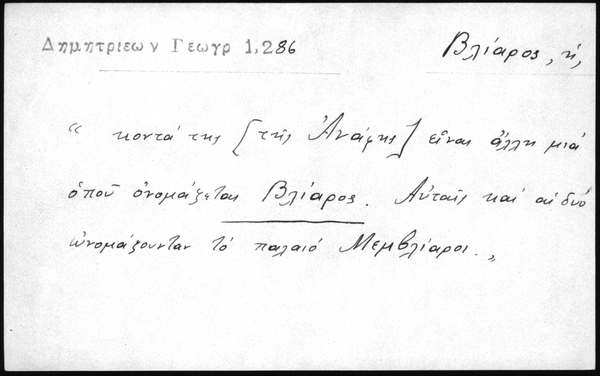 Δημητριεων Γεωγρ 1,286
Βλίαρος, ἡ,
“ κοντά της [τῆς Ἀνάφης] εἶναι ἄλλη μιά
ὁποῦ ὀνομάζεται Βλίαρος. Αὐταῖς καί αἱ δυό
ὠνομάζουνταν τό παλαιό Μεμβλίαροι. „